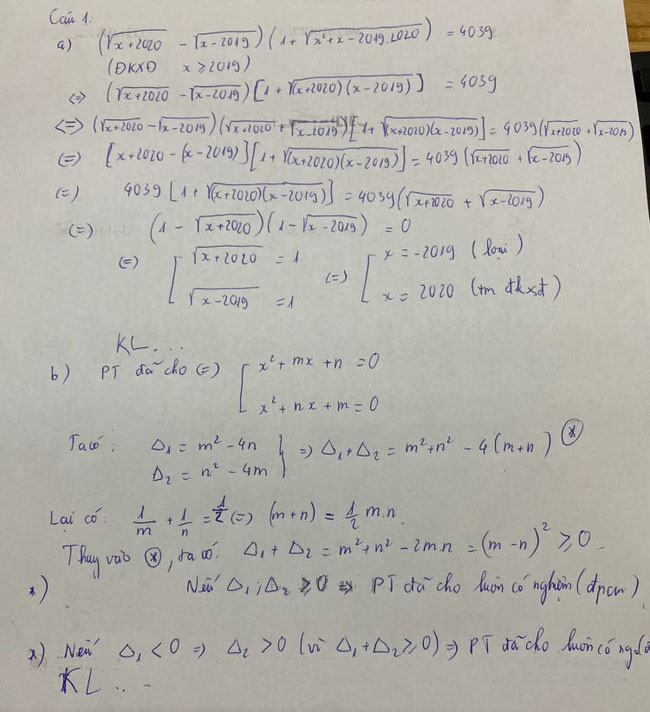 Câu 1.
a) (√x+2020 - √x-2019)(1+√x²+x-2019.2020) = 4039
(ĐKXĐ x ≥ 2019)
<=> (√x+2020 - √x-2019)[1+√(x+2020)(x-2019)] = 4039
<=> (√x+2020 - √x-2019)(√x+2020 + √x-2019)[1+√(x+2020)(x-2019)] = 4039(√x+2020 + √x-2019)
(=) [x+2020-(x-2019)][1+√(x+2020)(x-2019)] = 4039(√x+2020 + √x-2019)
(=) 4039[1+√(x+2020)(x-2019)] = 4039(√x+2020 + √x-2019)
(=) (1-√x+2020)(1-√x-2019) = 0
(=) [√x+2020 = 1 (=) [x = -2019 (loại)
√x-2019 = 1 x = 2020 (tm đkxđ)
KL...
b) PT đã cho (=) [x²+mx+n = 0
x²+nx+m = 0
Ta có: Δ₁ = m²-4n } => Δ₁+Δ₂ = m²+n² - 4(m+n) (*)
Δ₂ = n²-4m
Lại có: 1/m + 1/n = 1/2 (=) (m+n) = 1/2 m.n
Thay vào (*), ta có: Δ₁+Δ₂ = m²+n²-2mn = (m-n)² ≥ 0.
*) Nếu Δ₁; Δ₂ ≥ 0 => PT đã cho luôn có nghiệm (đpcm)
*) Nếu Δ₁ < 0 => Δ₂ > 0 (vì Δ₁+Δ₂ ≥ 0) => PT đã cho luôn có
KL...